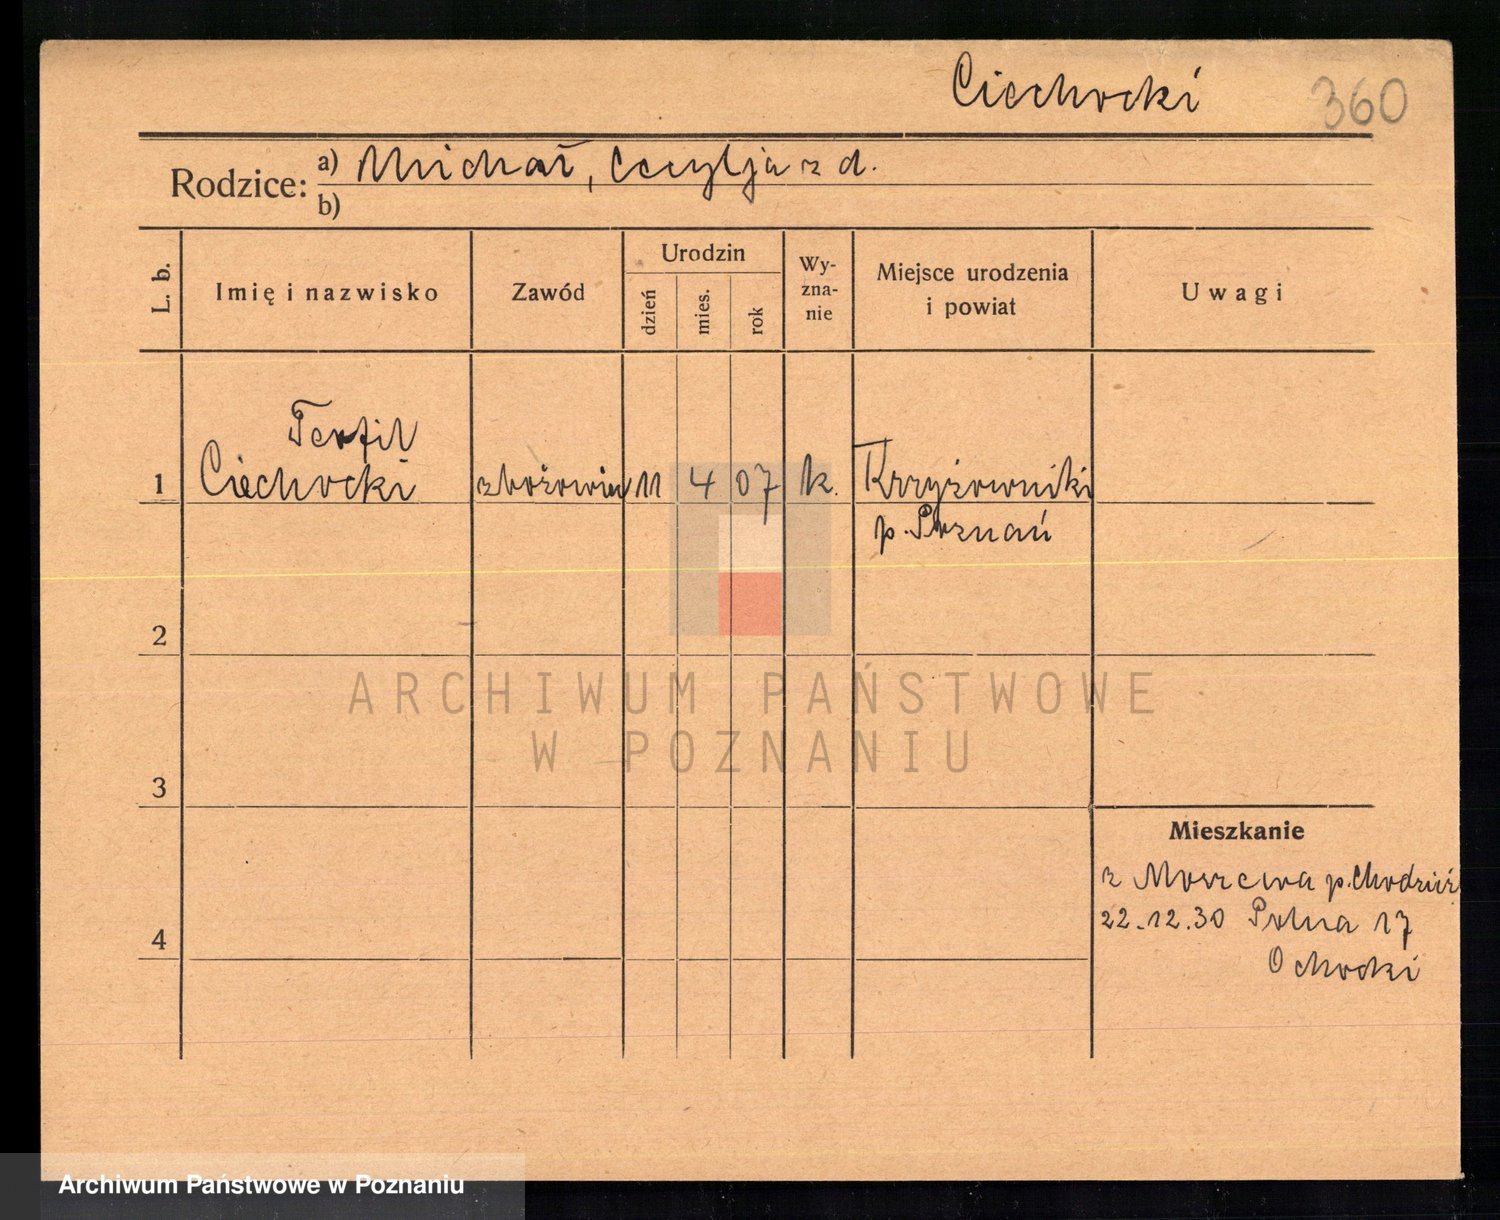 Ciechocki 360
Rodzice: a) Michał, Cecylja z d.
b)
L. b. Imię i nazwisko Zawód Urodzin dzień mies. rok Wy-zna-nie Miejsce urodzenia i powiat Uwagi
Teofil
1 Ciechocki zbożowiec 11 4 07 k. Krzyżowniki
p. Poznań
2
ARCHIWUM PAŃSTWOWE
W POZNANIU
3
Mieszkanie
z p. Chodzież
22.12.30 Polna 17
4 Ochocki
Archiwum Państwowe w Poznaniu